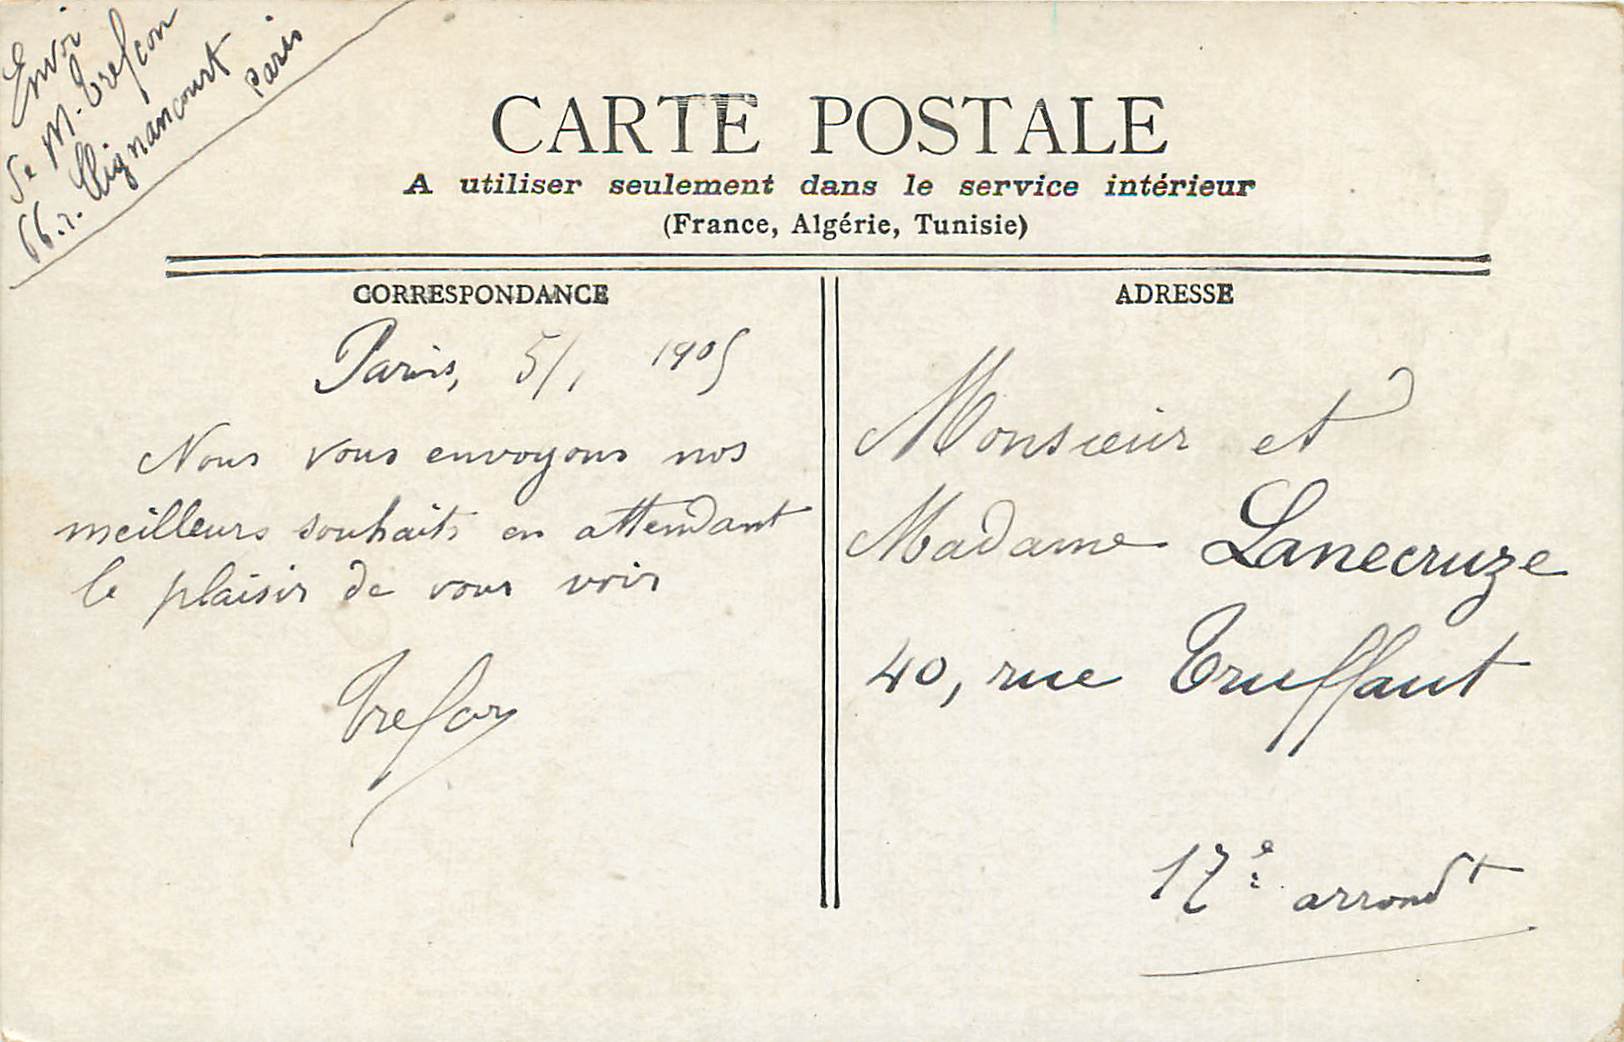 Envoi
de M. Trefcon
66. r. Clignancourt
Paris
CARTE POSTALE
A utiliser seulement dans le service intérieur
(France, Algérie, Tunisie)
CORRESPONDANCE
Paris, 5/1 1905
Nous vous envoyons nos
meilleurs souhaits en attendant
le plaisir de vous voir
Trefcon
ADRESSE
Monsieur et
Madame Lanecruze
40, rue Truffaut
17e arrondt